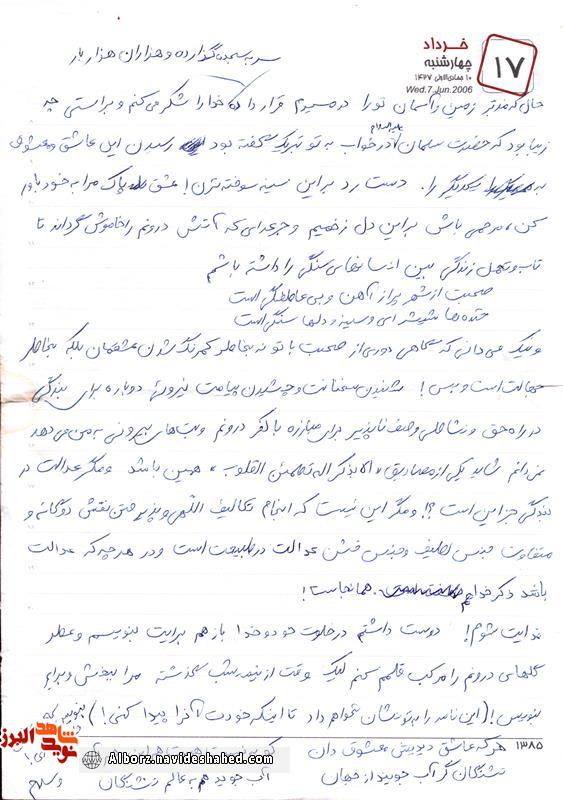 ۱۷
خرداد
چهارشنبه
۱۰ جمادی‌الاولی ۱۴۲۷
Wed.7.Jun.2006
سر به سجده گذارده و هزاران هزار بار
حال که مدبر زمین و آسمان تو را در مسیرم قرار داده خدا را شکر می‌کنم و براستی چه
زیبا بود که حضرت سلمان علیه السلام در خواب به تو تبریک گفته بود رسیدن این عاشق و معشوق
به یکدیگر را. دست رد بر این سینه سوخته نزن! عشق پاک مرا به خود باور
کن، مرحمی باش بر این دل زخمیم و جرعه‌ای که آتش درونم را خاموش گرداند تا
تاب و تحمل زندگی بین انسانهای سنگی را داشته باشم
صحبت از شهر پر از آهن و بی عاطفگی است
خنده‌ها شیشه‌ای و سینه و دلها سنگی است
و نیک می‌دانی که گاهی دوری از صحبت با تو نه بخاطر کمرنگ شدن عشقمان بلکه بخاطر
خجالت است و بس! شنیدن سخنانت و چشیدن پیامت نیروی دوباره برای بندگی
در راه حق و نشاطی وصف ناپذیر برای مبارزه با کفر درونم و بت‌های بیرونی به من می‌دهد
نمی‌دانم شاید یکی از مصادیق «الا بذکر الله تطمئن القلوب» همین باشد و مگر عدالت در
بندگی جز این است؟! و مگر این نیست که انجام تکالیف الهی و پذیرفتن نقش دوگانه و
متفاوت جنس لطیف و جنس خشن عدالت در طبیعت است و در هر چه که عدالت
باشد ذکر خدا هم همانجاست!
فدایت شوم! دوست داشتم در خلوت خود و خدا باز هم برایت بنویسم و عطر
گلهای درونم را مرکب قلمم کنم لیک وقت از نیمه شب گذشته مرا ببخش و برایم
بنویس! (این نامه را به تو نشان نخواهم داد تا اینکه خودت آنرا پیدا کنی!)
۱۳۸۵
هر که عاشق دیدیش معشوق دان
تشنگان گر آب جویند از جهان
آب جوید هم به عالم تشنگان
والسلام
شاهد
نوید
البرز
Alborz.navideshahed.com